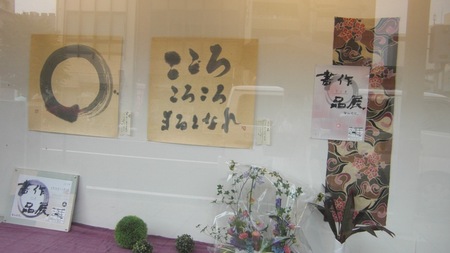 こころ
ころころ
まるくなれ
書作
品展
書作
品展